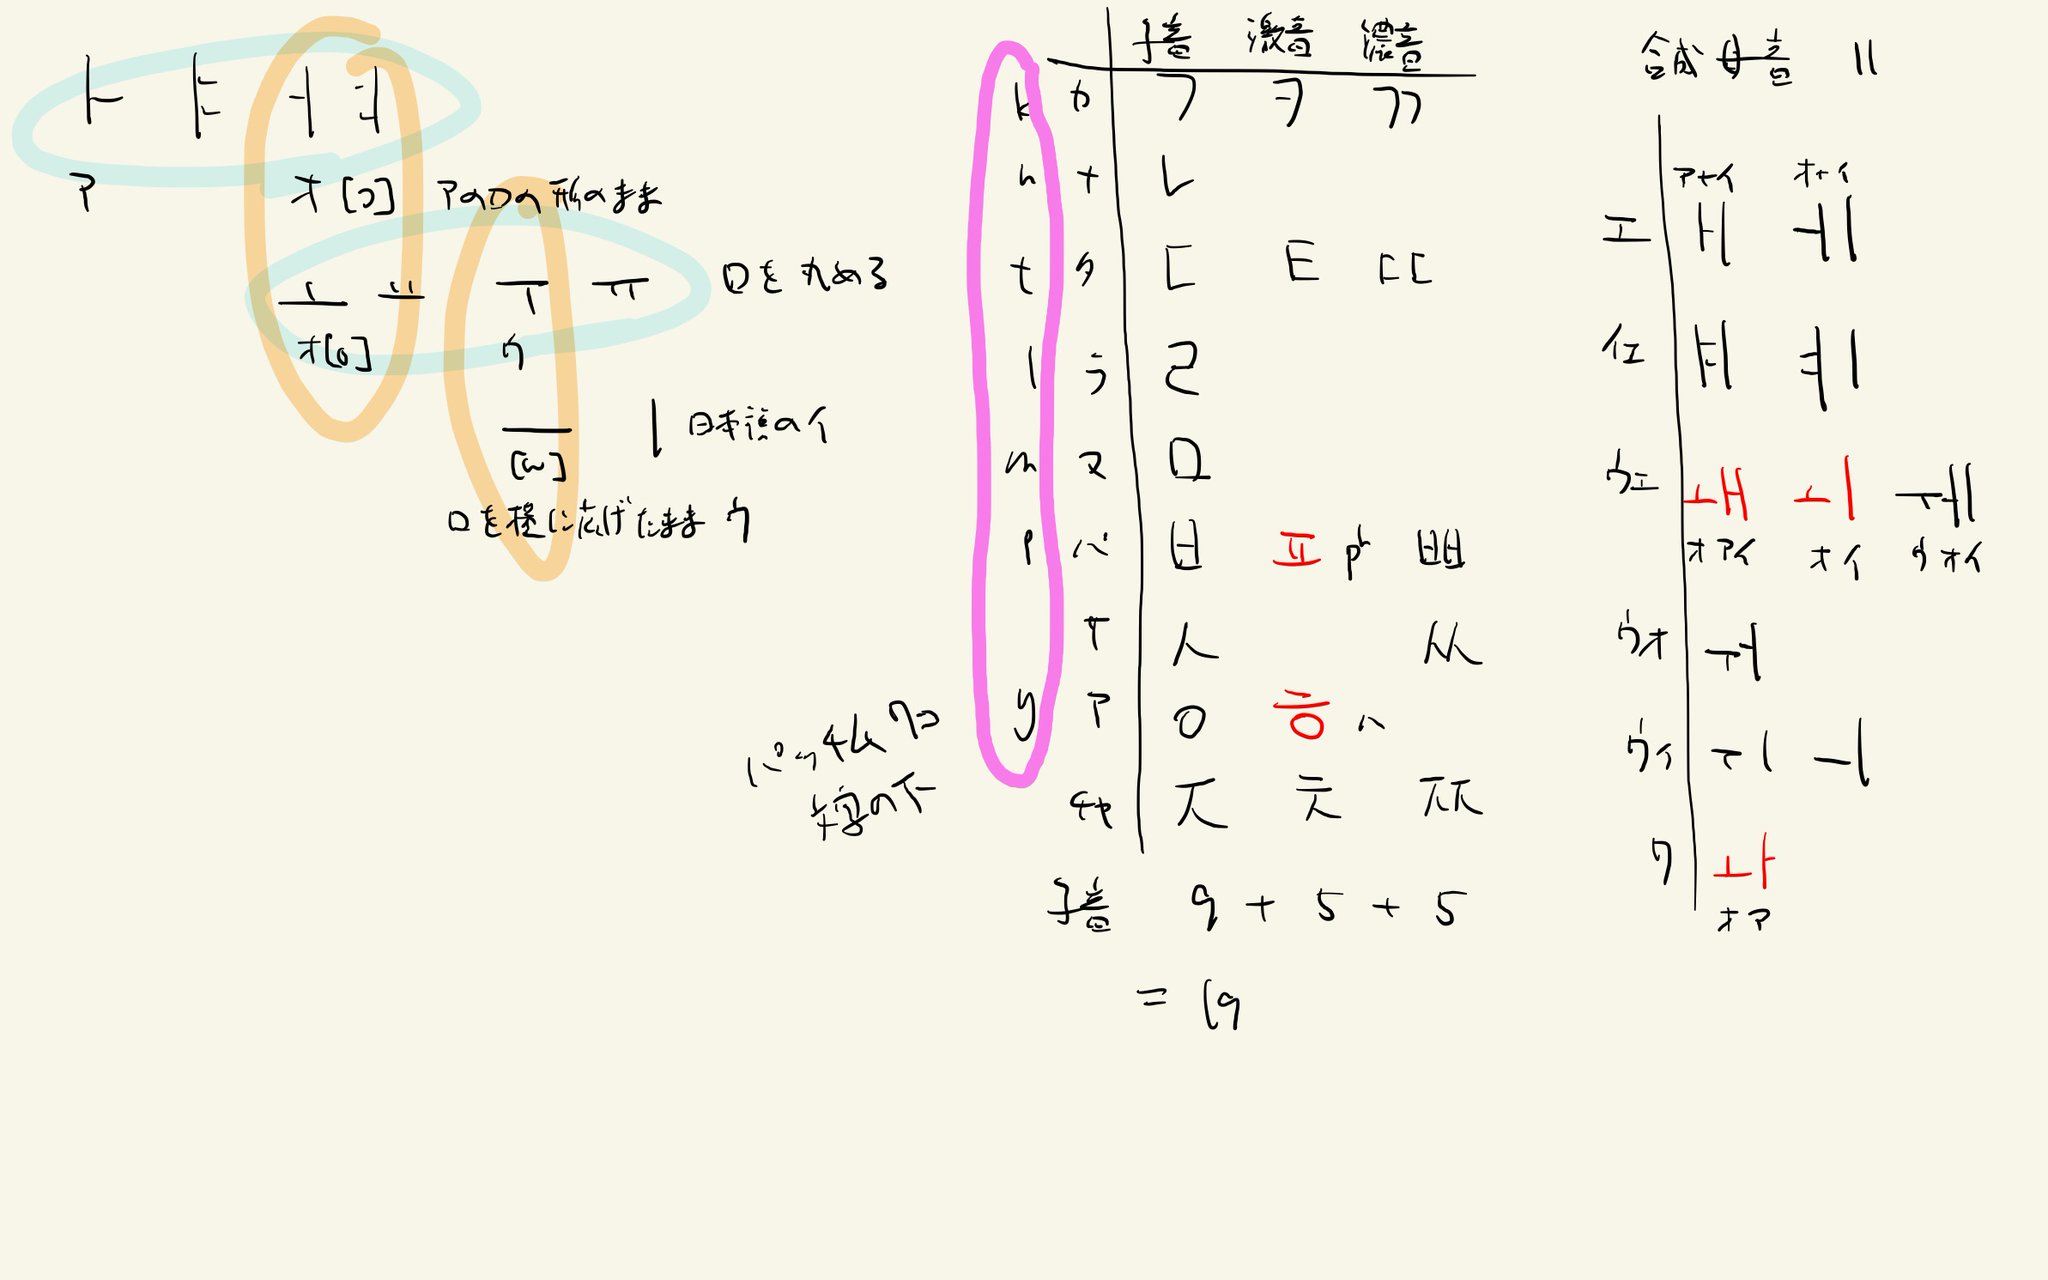 ㅏ ㅑ ㅓ ㅕ
ア オ [ɔ] アの口の形のまま
ㅗ ㅛ ㅜ ㅠ 口を丸める
オ[o] ウ
ㅡ ㅣ 日本語のイ
[ɯ]
口を横に広げたまま ウ
子音 激音 濃音
k カ ㄱ ㅋ ㄲ
n ナ ㄴ
t タ ㄷ ㅌ ㄸ
l ラ ㄹ
m マ ㅁ
p パ ㅂ ㅍ pʰ ㅃ
サ ㅅ ㅆ
y ア ㅇ ㅎ ハ
チャ ㅈ ㅊ ㅉ
パッチム 7コ
文字の下
子音 9 + 5 + 5
= 19
合成母音 11
ア+イ オ+イ
エ ㅐ ㅔ
イエ ㅒ ㅖ
ウエ ㅙ ㅚ ㅞ
オアイ オイ ウオイ
ウオ ㅝ
ウイ ㅟ ㅢ
ワ ㅘ
オア